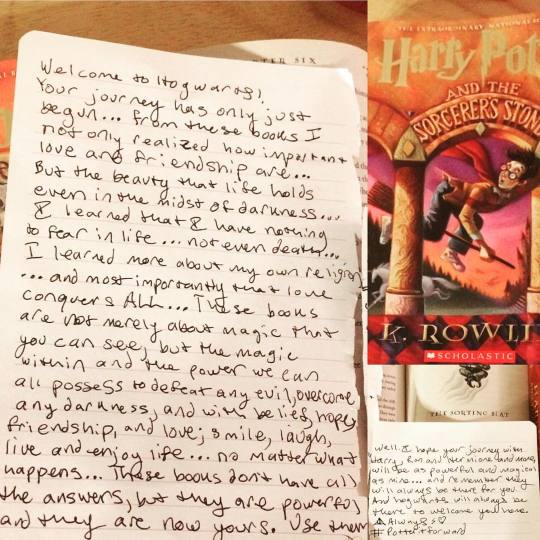 TER SIX
Welcome to Hogwarts!
Your journey has only just
begun... From these books I
not only realized how important
love and friendship are...
But the beauty that life holds
even in the midst of darkness...
& learned that I have nothing
to fear in life... not even death...
I learned more about my own religion
... and most importantly that love
conquers ALL... These books
are not merely about magic that
you can see, but the magic
within and the power we can
all possess to defeat any evil, overcome
any darkness, and with belief, hope,
friendship, and love; smile, laugh,
live and enjoy life... no matter what
happens... These books don't have all
the answers, but they are powerful
and they are now yours. Use them
THE EXTRAORDINARY NATIONAL
Harry Pot
AND THE
SORCERER'S STONE
K. ROWLI
SCHOLASTIC
THE SORTING HAT
Well. I hope your journey with
Harry, Ron and Hermione and more,
will be as powerful and magical
as mine... and remember they
will always be there for you.
And hogwarts will always be
there to welcome you home.
Always
#Potteritforward